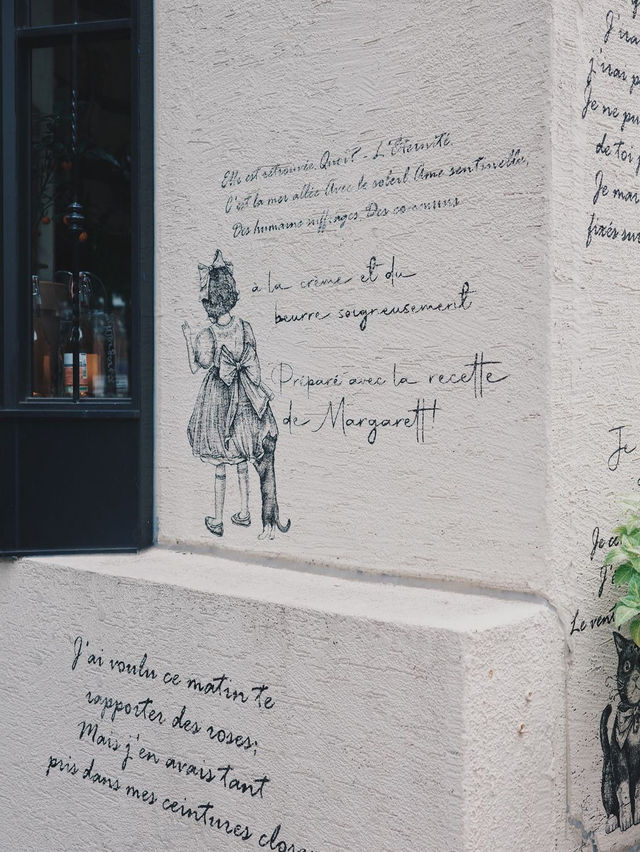 Elle est retrouvée. Quoi? - L'Éternité.
C'est la mer allée Avec le soleil. Ame sentinelle,
Des humains suffrages, Des communs
à la crème et du
beurre soigneusement
Préparé avec la recette
de Margarett!
J'ai voulu ce matin te
rapporter des roses;
Mais j'en avais tant
pris dans mes ceintures
J'irai
j'irai
Je ne
de toi
Je
fixés
Je
Je
Le vent